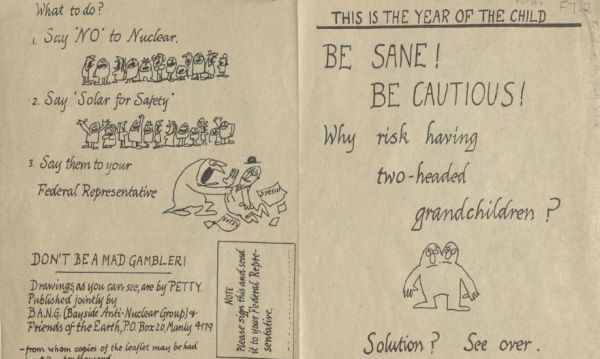 What to do?
1. Say "NO" to Nuclear.
2. Say "Solar for Safety"
3. Say them to your
Federal Representative
Special
DON'T BE A MAD GAMBLER!
Drawings, as you can see, are by PETTY.
Published jointly by
B.A.N.G. (Bayside Anti-Nuclear Group) &
Friends of the Earth, P.O. Box 20, Manly 4179
-from whom copies of the leaflet may be had
NOTE
Please sign this and send
it to your Federal Repre-
sentative.
THIS IS THE YEAR OF THE CHILD
BE SANE!
BE CAUTIOUS!
Why risk having
two-headed
grandchildren?
Solution? See over.